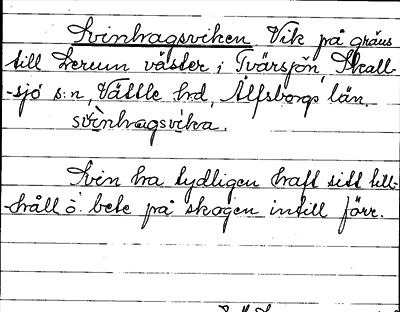 Svinhagsviken Vik på gräns
till Lerum väster i Tvärsjön, Skall-
-sjö s:n, Vättle hd, Älfsborgs län.
svinhagsvika.
Svin ha tydligen haft sitt till-
-håll o. bete på skogen intill förr.